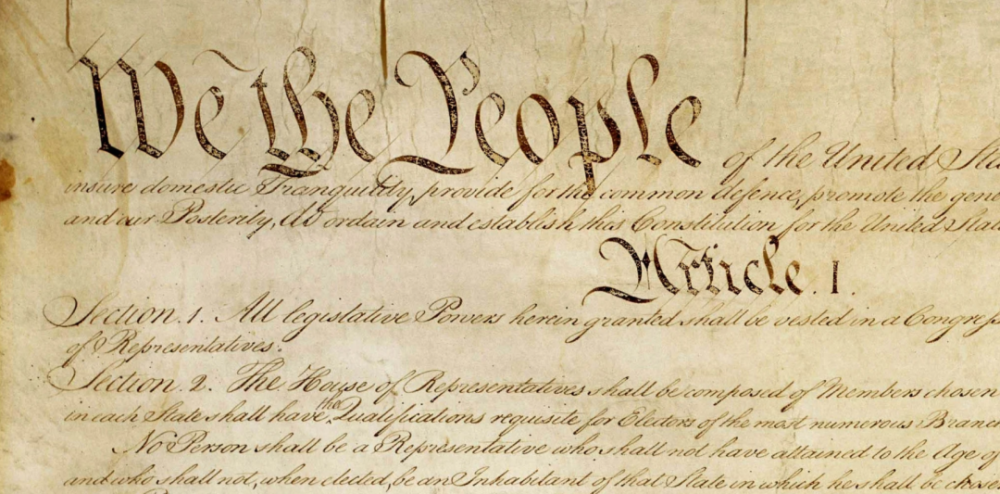 We the People of the United Sta
insure domestic Tranquility, provide for the common defence, promote the gene
and our Posterity, do ordain and establish this Constitution for the United Stat
Article. I.
Section. 1. All legislative Powers herein granted shall be vested in a Congress
of Representatives.
Section. 2. The House of Representatives shall be composed of Members chosen
in each State shall have the Qualifications requisite for Electors of the most numerous Branch
No Person shall be a Representative who shall not have attained to the Age of
and who shall not, when elected, be an Inhabitant of that State in which he shall be chose